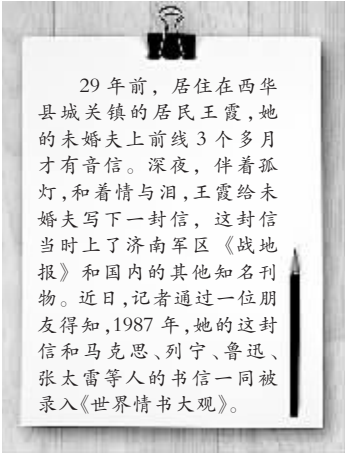 29 年前，居住在西华
县城关镇的居民王霞,她
的未婚夫上前线 3 个多月
才有音信。深夜，伴着孤
灯,和着情与泪,王霞给未
婚夫写下一封信，这封信
当时上了济南军区《战地
报》和国内的其他知名刊
物。近日,记者通过一位朋
友得知,1987 年,她的这封
信和马克思、列宁、鲁迅、
张太雷等人的书信一同被
录入《世界情书大观》。